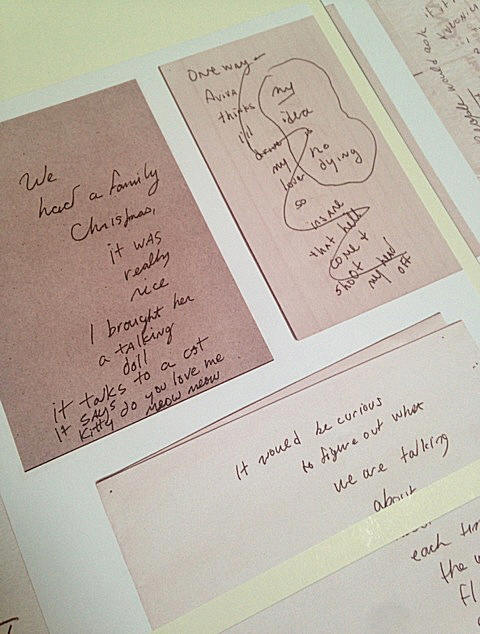 We
had a family
Christmas,
it was
really
nice
I brought her
a talking
doll
it talks to a cat
it says
Kitty do you love me
meow meow
One way
Aviva
thinks
I'll
drive
my
lover
so
insane
that he'll
come &
shoot
my head
off
my
idea
is
no
dying
It would be curious
to figure out what
we are talking
about
each time
the w
fl
would ask it